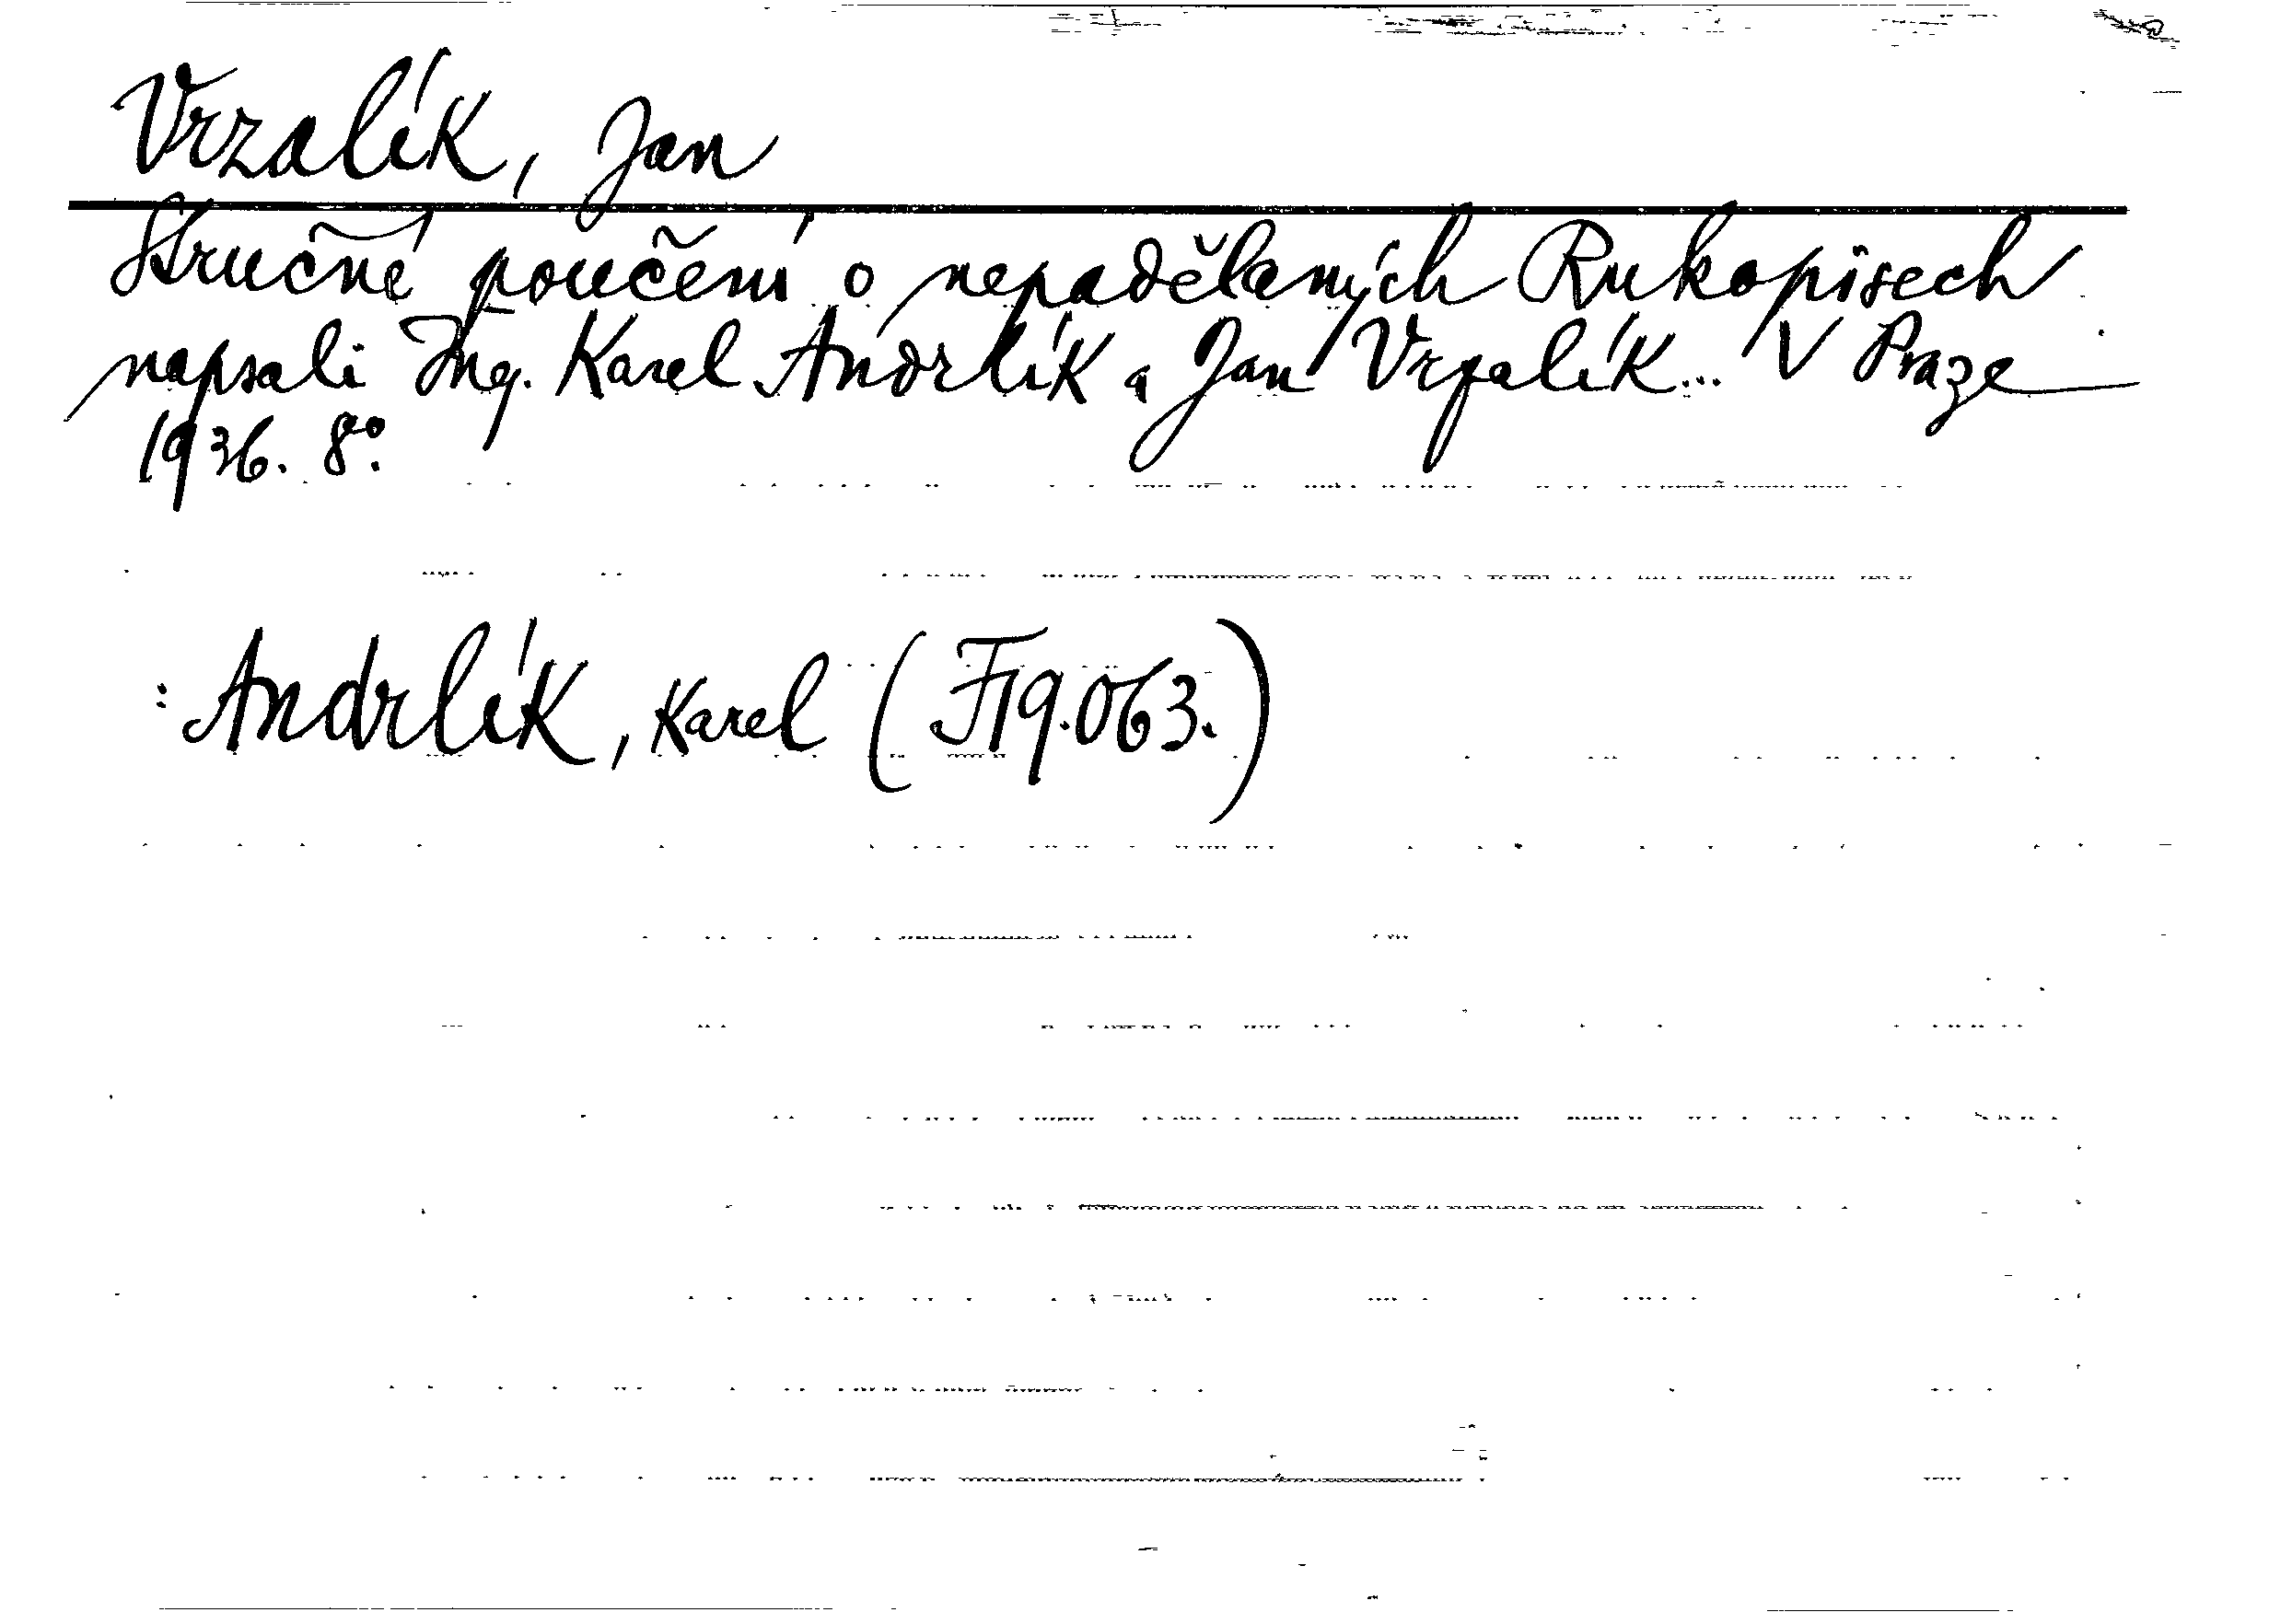 Vrzalík, Jan
Stručné poučení o nepadělaných Rukopisech
napsali Ing. Karel Andrlík a Jan Vrzalík... V Praze
1936. 8°.
: Andrlík, Karel (F 19.063.)